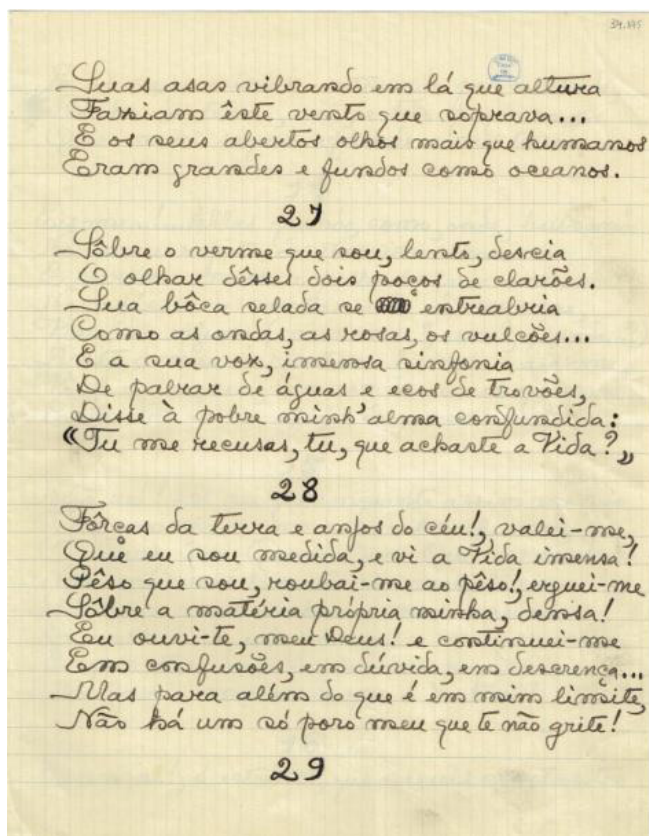 34.145
Suas asas vibrando em lá que altura
Faziam êste vento que soprava...
E os seus abertos olhos mais que humanos
Eram grandes e fundos como oceanos.
27
Sôbre o verme que sou, lento, descia
O olhar dêsses dois poços de clarões.
Sua bôca selada se entreabria
Como as ondas, as rosas, os vulcões...
E a sua voz, imensa sinfonia
De palrar de águas e ecos de trovões,
Disse à pobre minh'alma confundida:
«Tu me recusas, tu, que achaste a Vida?»
28
Fôrças da terra e anjos do céu!, valei-me,
Que eu sou medida, e vi a Vida imensa!
Pêso que sou, roubai-me ao pêso!, erguei-me
Sôbre a matéria própria minha, densa!
Eu ouvi-te, meu Deus! e continuei-me
Em confusões, em dúvida, em descrença...
Mas para além do que é em mim limite,
Não há um só poro meu que te não grite!
29